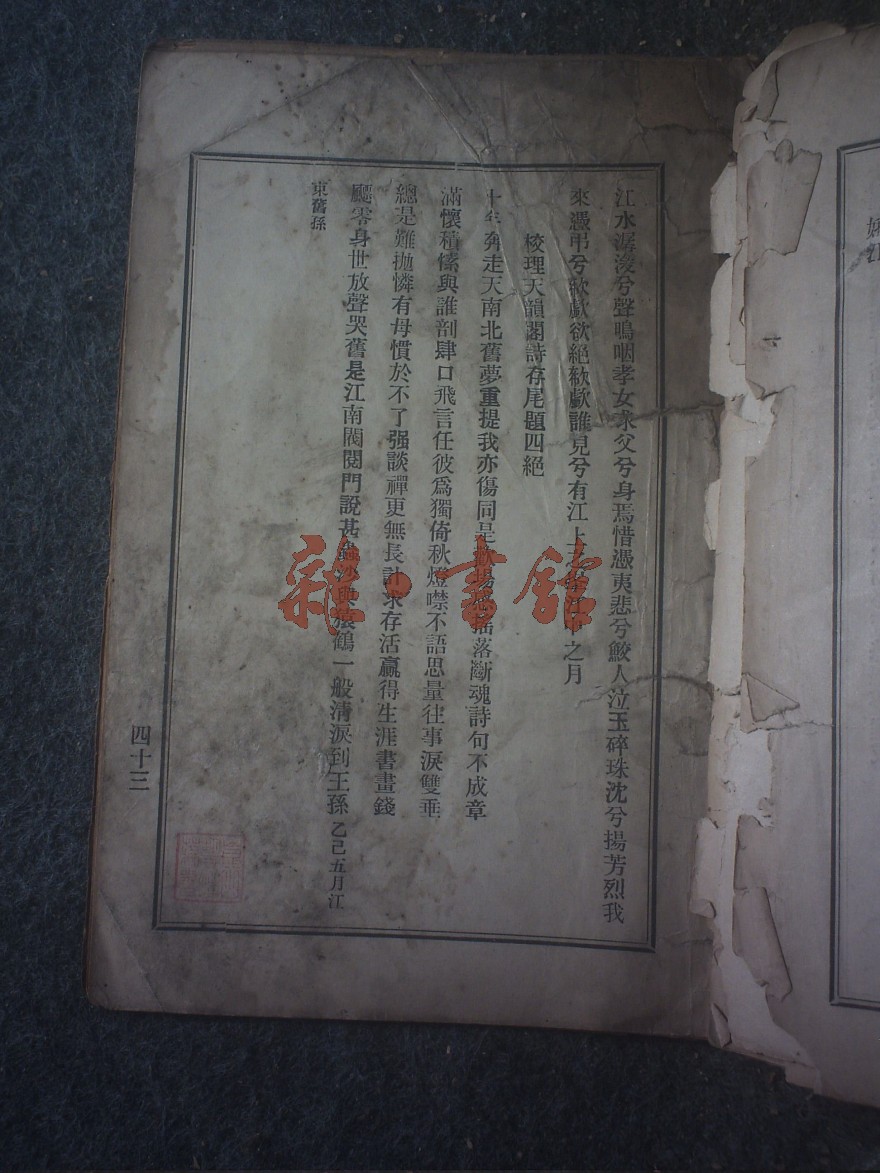 江水潺湲兮聲嗚咽孝女求父兮身焉惜憑夷悲兮鮫人泣玉碎珠沈兮揚芳烈我
來憑弔兮歔欷欲絕歔欷誰見兮有江上之
之月
校理天韻閣詩存尾題四絕
十年奔走天南北舊夢重提我亦傷同是
落斷魂詩句不成章
滿懷積愫與誰剖肆口飛言任彼爲獨倚秋燈噤不語思量往事淚雙垂
總是難拋憐有母慣於不了强談禪更無長計求存活贏得生涯書畫錢
飄零身世放聲哭舊是江南閥閱門說甚蟲沙與猿鶴一般清淚到王孫 乙己五月江
東舊孫
四十三
雜·書館